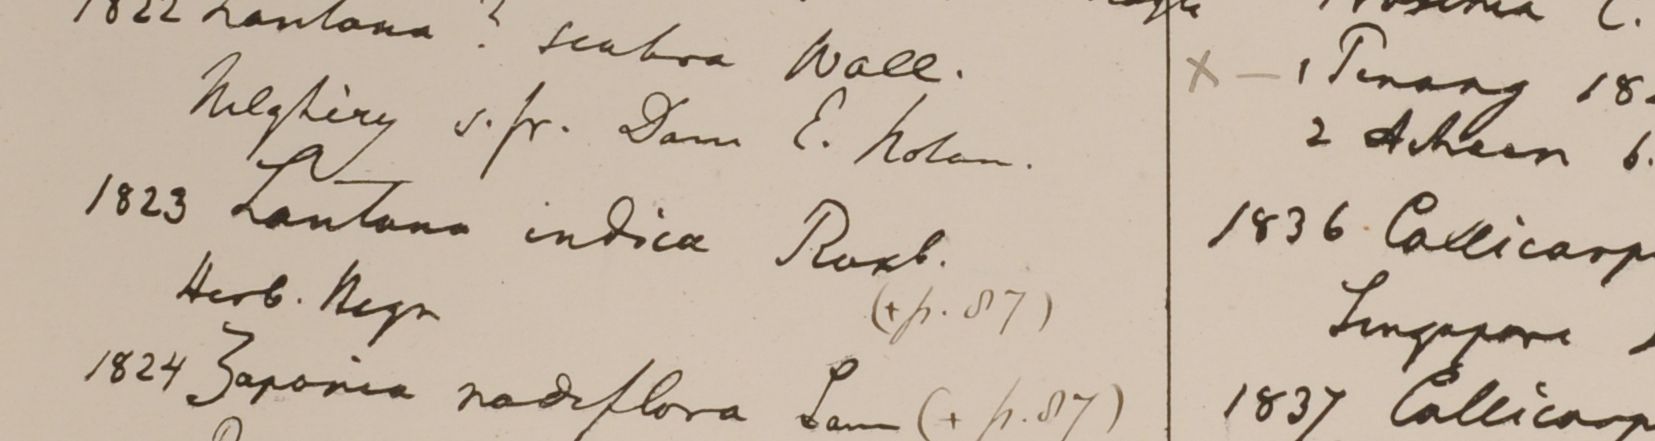 1822 Lantana ? scabra Wall.
Nelghiry s. fr. Dam E. Noton.
1823 Lantana indica Roxb.
Herb. Hegn (+ p. 87)
1824 Zapania nodiflora Lam (+ p. 87)
C.
x — 1 Penang 18
2 Acheen 6.
1836 Callicarp
Singapore
1837 Callicarp